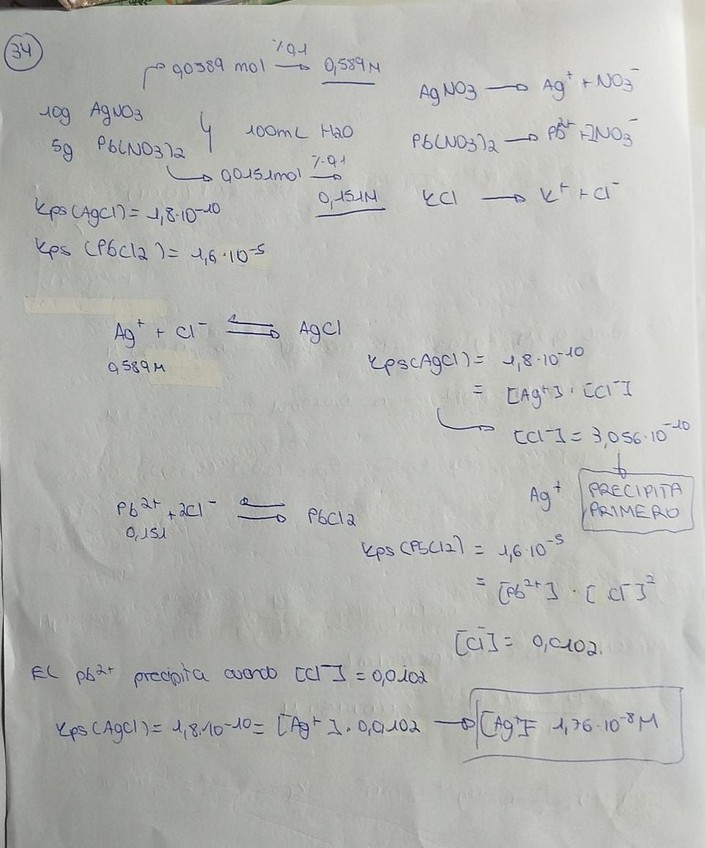 34
0,0589 mol → %0.1 0,589M
AgNO3 → Ag+ + NO3-
10g AgNO3
5g Pb(NO3)2
100mL H2O
Pb(NO3)2 → Pb2+ + 2NO3-
0,0151mol → %0.1
0,151M
KCl → K+ + Cl-
Kps(AgCl) = 1,8·10-10
Kps (PbCl2) = 1,6·10-5
Ag+ + Cl- ⇌ AgCl
0,589M
Kps(AgCl) = 1,8·10-10
= [Ag+]·[Cl-]
[Cl-] = 3,056·10-10
Ag+ PRECIPITA
PRIMERO
Pb2+ + 2Cl- ⇌ PbCl2
0,151
Kps (PbCl2) = 1,6·10-5
= [Pb2+]·[Cl-]2
[Cl-] = 0,0102.
El Pb2+ precipita cuando [Cl-] = 0,0102
Kps (AgCl) = 1,8·10-10 = [Ag+]·0,0102 → [Ag+] = 1,76·10-8M